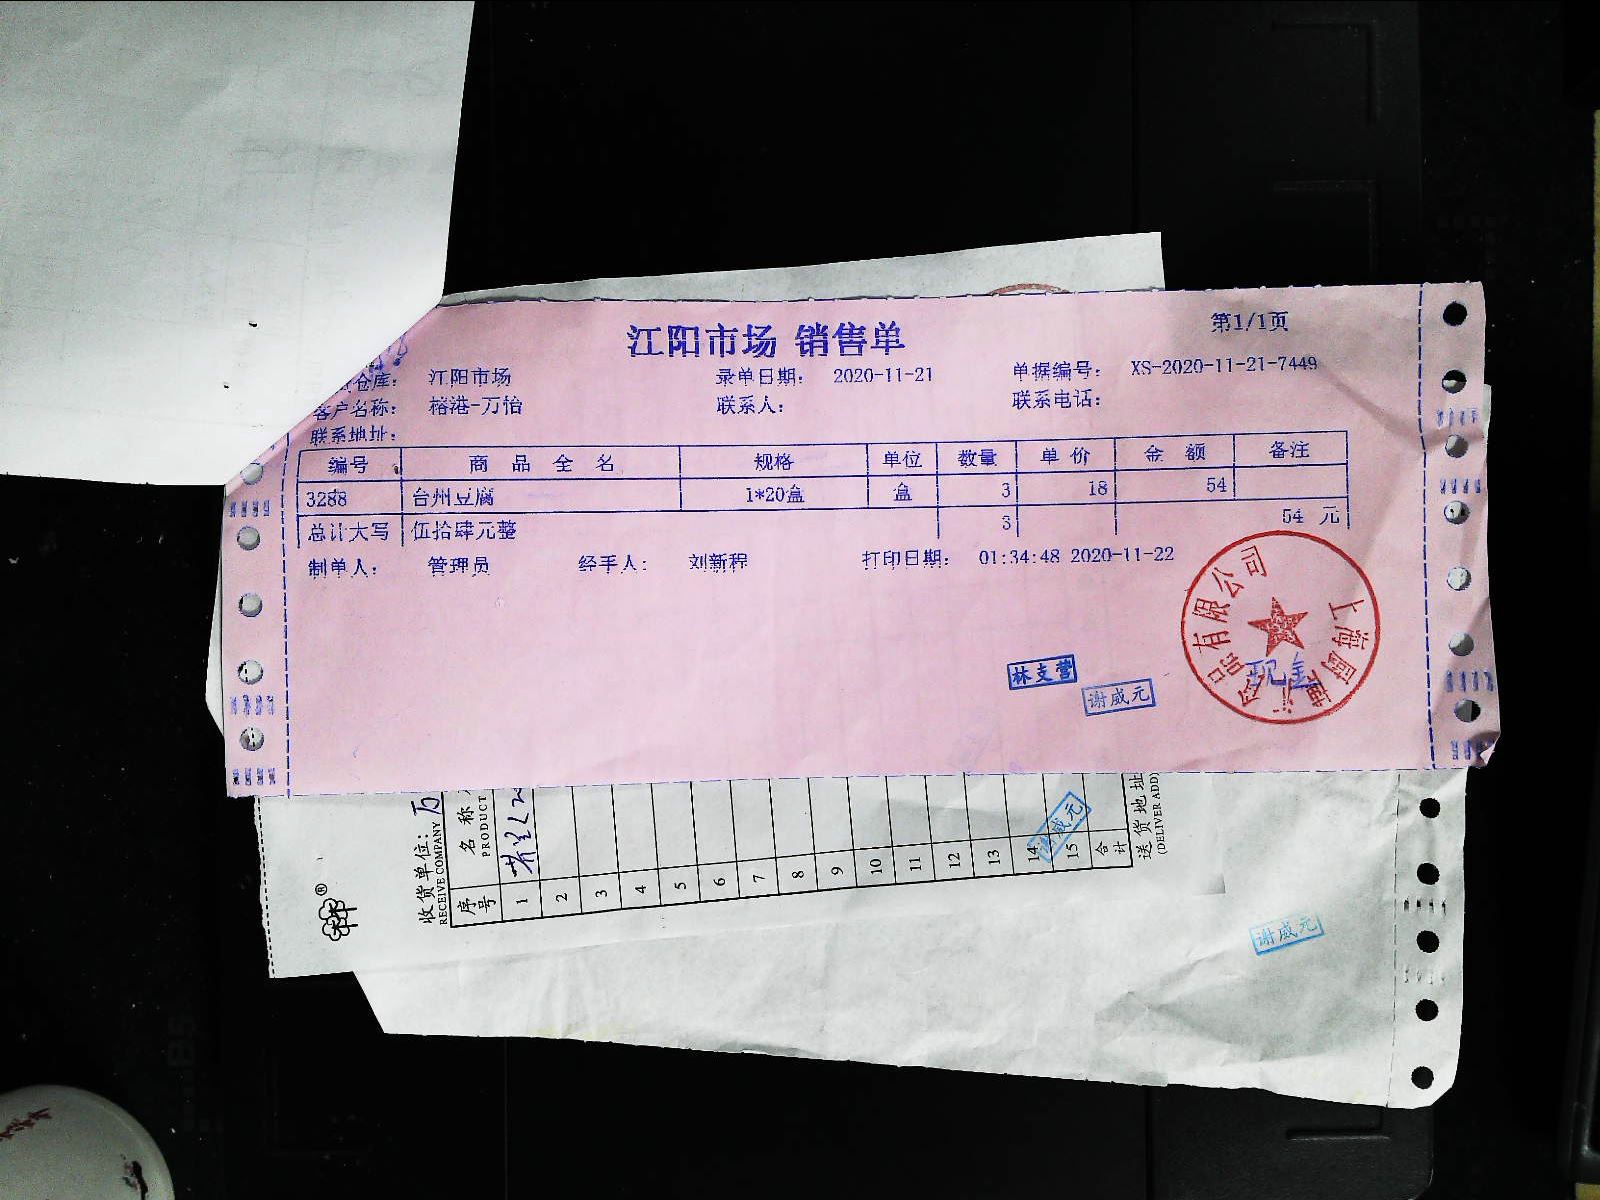 江阳市场 销售单
第1/1页
仓库： 江阳市场 录单日期： 2020-11-21 单据编号： XS-2020-11-21-7449
客户名称： 榕港-万怡 联系人： 联系电话：
联系地址：
编号 商品全名 规格 单位 数量 单价 金额 备注
3288 台州豆腐 1*20盒 盒 3 18 54
总计大写 伍拾肆元整 3 54 元
制单人： 管理员 经手人： 刘新程 打印日期： 01:34:48 2020-11-22
上海 食品有限公司
现金
林支营
谢威元
收货单位： 万
RECEIVE COMPANY
序号 名称
PRODUCT
1
2
3
4
5
6
7
8
9
10
11
12
13
14
15
合计
送货地址
(DELIVER ADD
谢威元
谢威元